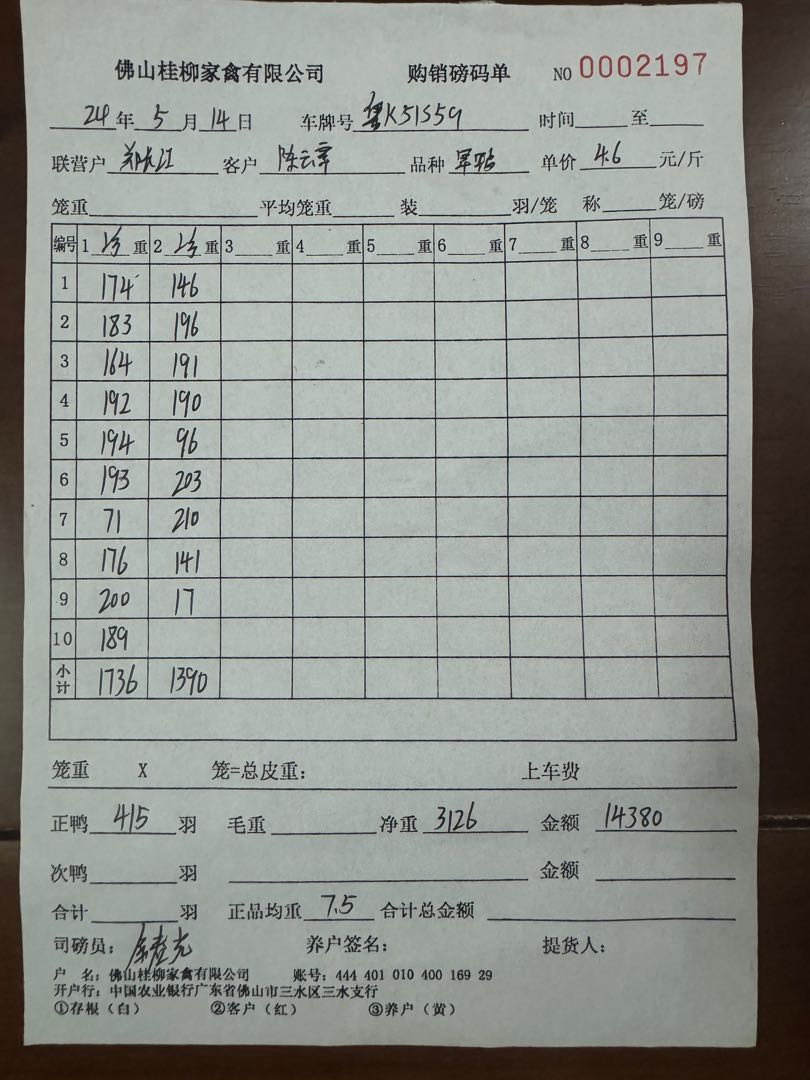 佛山桂柳家禽有限公司 购销磅码单 NO 0002197
24年 5 月 14 日 车牌号 粤K51S59 时间 至
联营户 客户 陈云章 品种 单价 4.6 元/斤
笼重 平均笼重 装 羽/笼 称 笼/磅
编号 1 重 2 重 3 重 4 重 5 重 6 重 7 重 8 重 9 重
1 174 146
2 183 196
3 164 191
4 192 190
5 194 96
6 193 203
7 71 210
8 176 141
9 200 17
10 189
小计 1736 1390
笼重 X 笼=总皮重: 上车费
正鸭 415 羽 毛重 净重 3126 金额 14380
次鸭 羽 金额
合计 羽 正品均重 7.5 合计总金额
司磅员: 养户签名: 提货人:
户 名: 佛山桂柳家禽有限公司 账号: 444 401 010 400 169 29
开户行: 中国农业银行广东省佛山市三水区三水支行
①存根(白) ②客户(红) ③养户(黄)